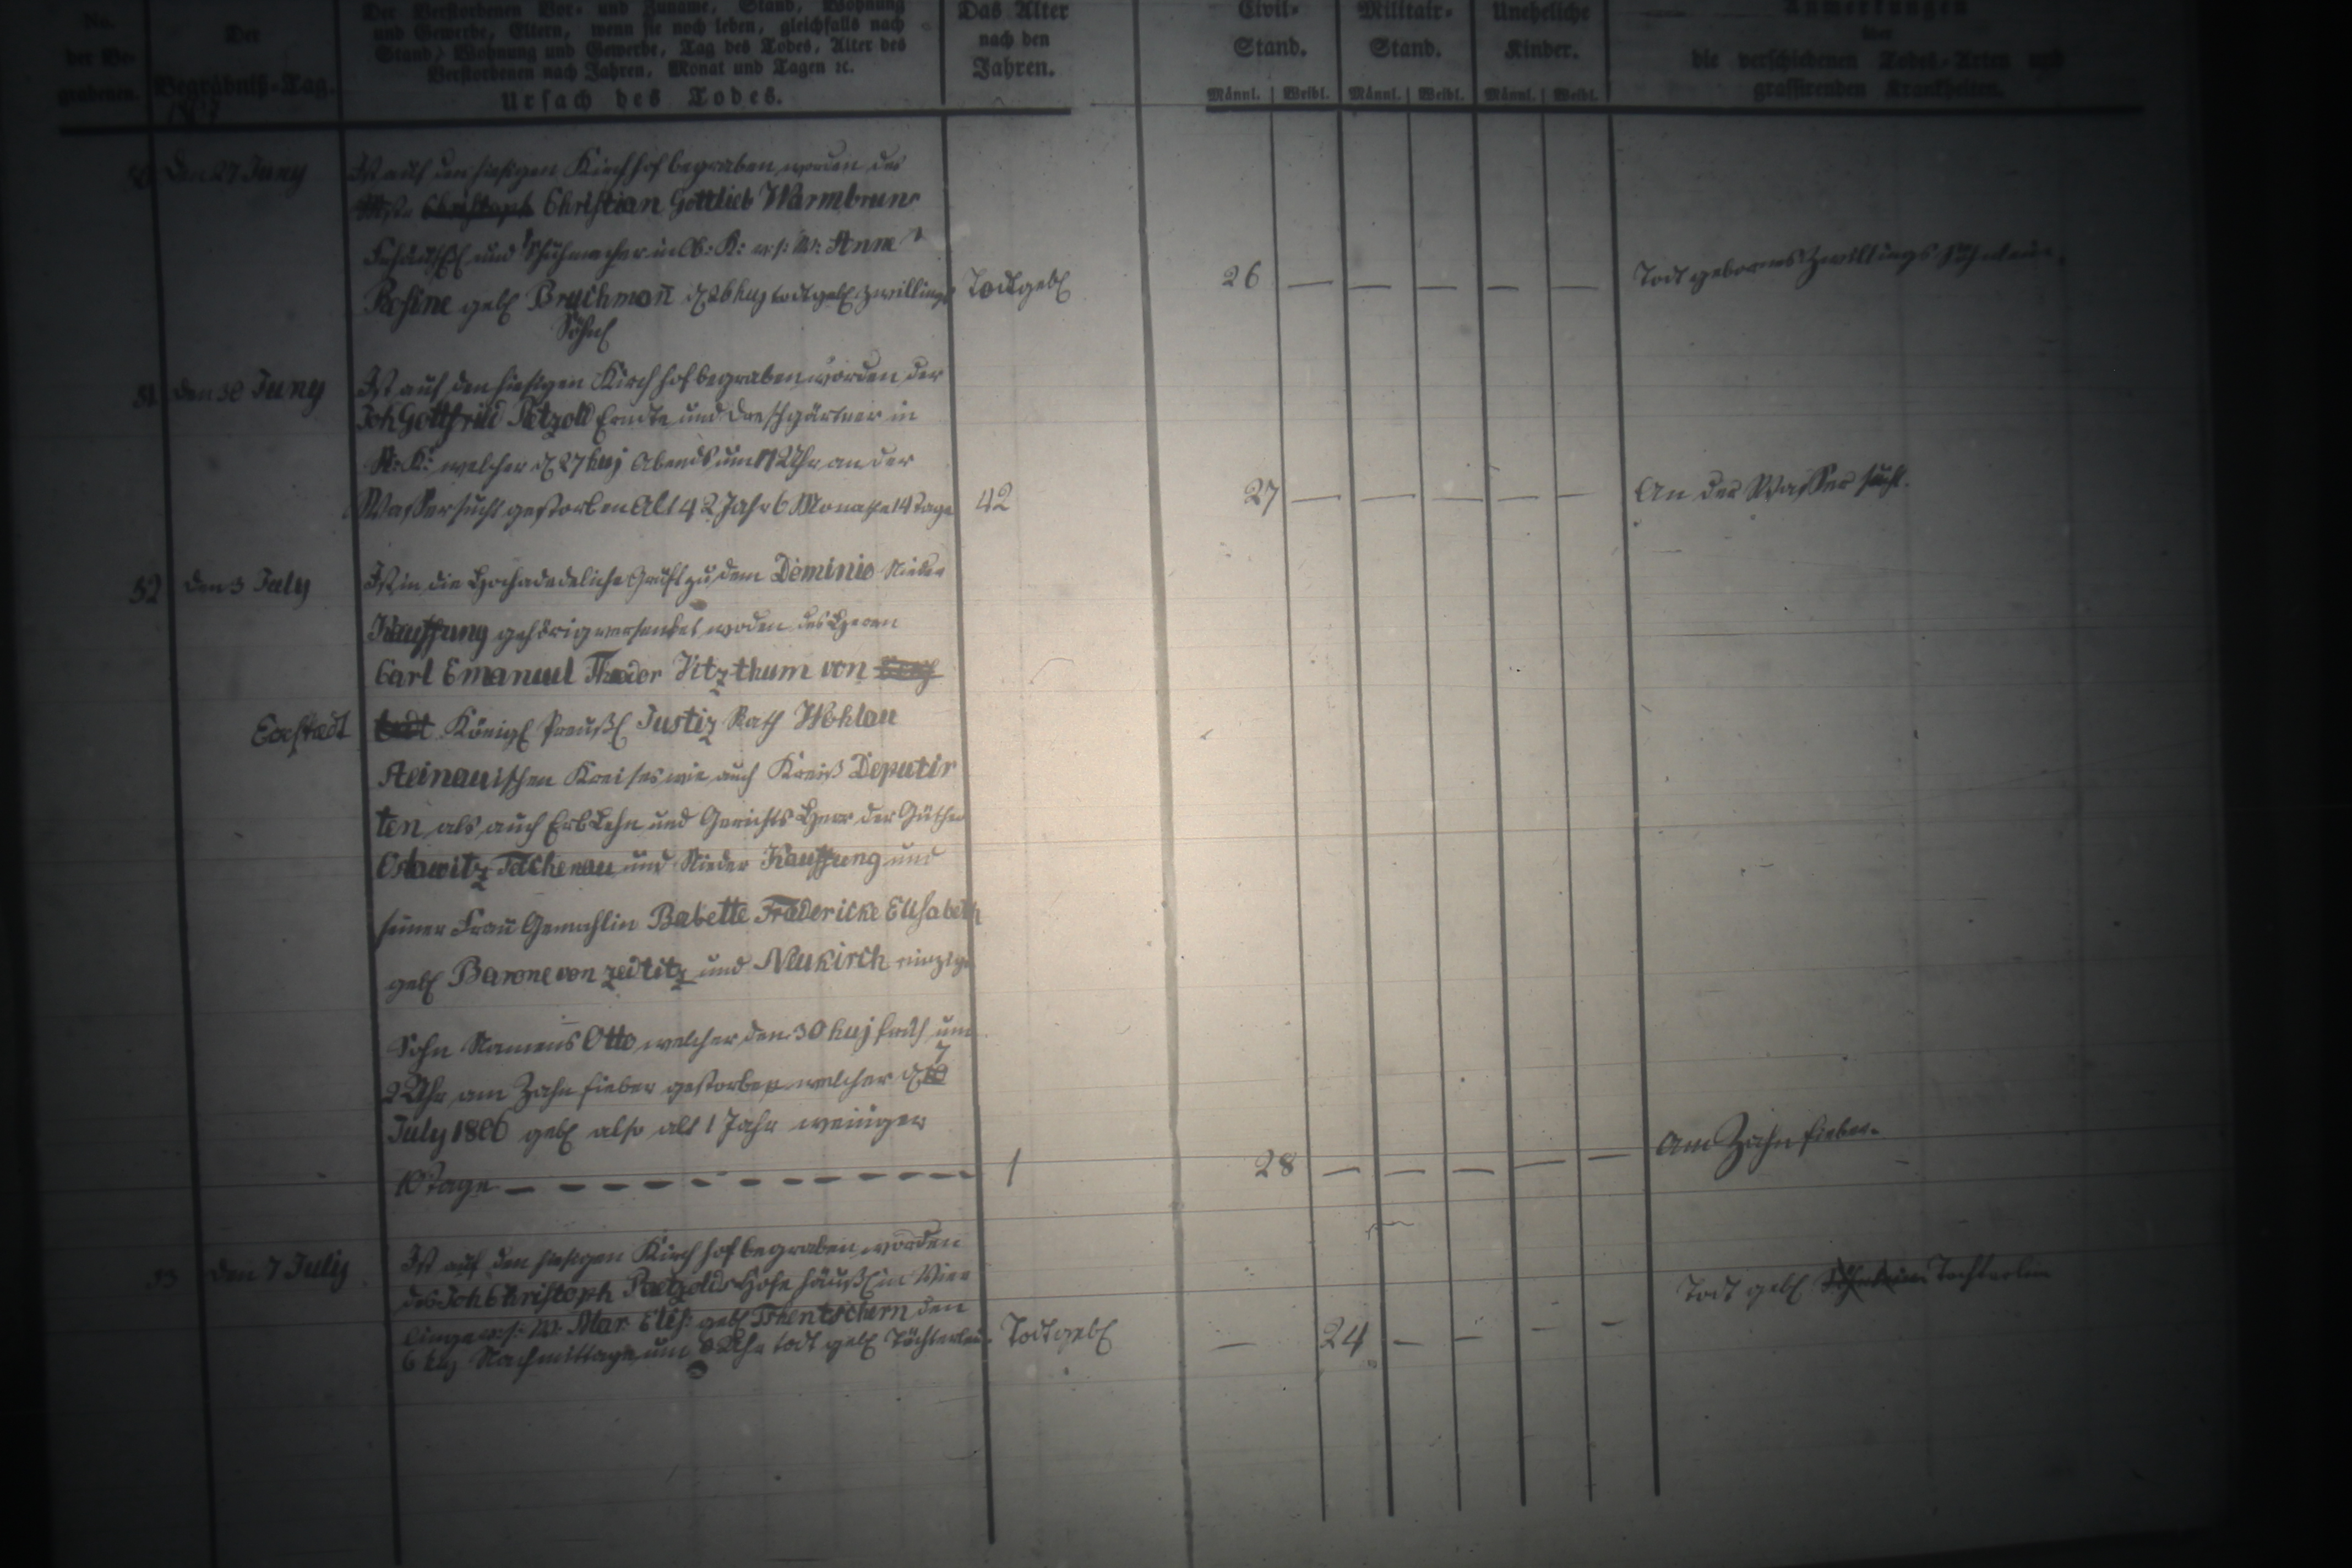 No.
der Be-
grabenen.
Der
Begräbniß-Tag.
1807
Der Verstorbenen Vor- und Zuname, Stand, Wohnung
und Gewerbe, Eltern, wenn sie noch leben, gleichfalls nach
Stand, Wohnung und Gewerbe, Tag des Todes, Alter des
Verstorbenen nach Jahren, Monat und Tagen ꝛc.
Ursach des Todes.
Das Alter
nach den
Jahren.
Civil-
Stand.
Männl. Weibl.
Militair-
Stand.
Männl. Weibl.
Uneheliche
Kinder.
Männl. Weibl.
Anmerkungen
über
die verschiedenen Todes-Arten und
grassirenden Krankheiten.
50 den 27 Juny Ist auf den hiesigen Kirchhof begraben worden des
Christian Gottlieb Warmbrun
und Schuhmacher in Ob: K: Anne
Rosine geb Bruchmañ d 26 huj todtgeb Zwillings
Söhnl
Todtgeb 26 — — — — — Todt gebornes Zwillings Söhnlein
51 den 30 Juny Ist auf den hiesigen Kirchhof begraben worden der
Joh Gottfried Petzold und Dreschgärtner in
K: welcher d 27 huj Abends um Uhr an der
Wassersucht gestorben Alt 42 Jahr 6 Monathe 14 Tage
42 27 — — — — — An der Wassersucht.
52 den 3 July Ist in die Hochadeliche Gruft zu dem Dominio Nieder
Kauffung gehörig worden des Herrn
Carl Emanuel Theodor Vitzthum von
Eckstædt Königl Preußl Justiz Rath Wohlau
Steinauischen Kreises wie auch Kreiß Deputir
ten als auch Erb Lehn und Gerichts Herr der Güther
und Nieder Kauffung und
seiner Frau Gemahlin Babette Friedericke Elisabeth
geb Barone von Zedlitz und Neukirch einziger
Sohn Namens Otto welcher den 30 huj früh um
2 Uhr am Zahnfieber gestorben welcher d 7
July 1806 geb also alt 1 Jahr weniger
10 Tage — — — — — — — —
1 28 — — — — — Am Zahnfieber.
53 den 7 July Ist auf den hiesigen Kirchhof begraben worden
des Joh Christoph Petzolds Hofe häußl in
Mar Elis: geb den
6 huj Nachmittags um 8 Uhr todt geb Töchterlein
Todtgeb — 24 — — — — Todt geb Töchterlein